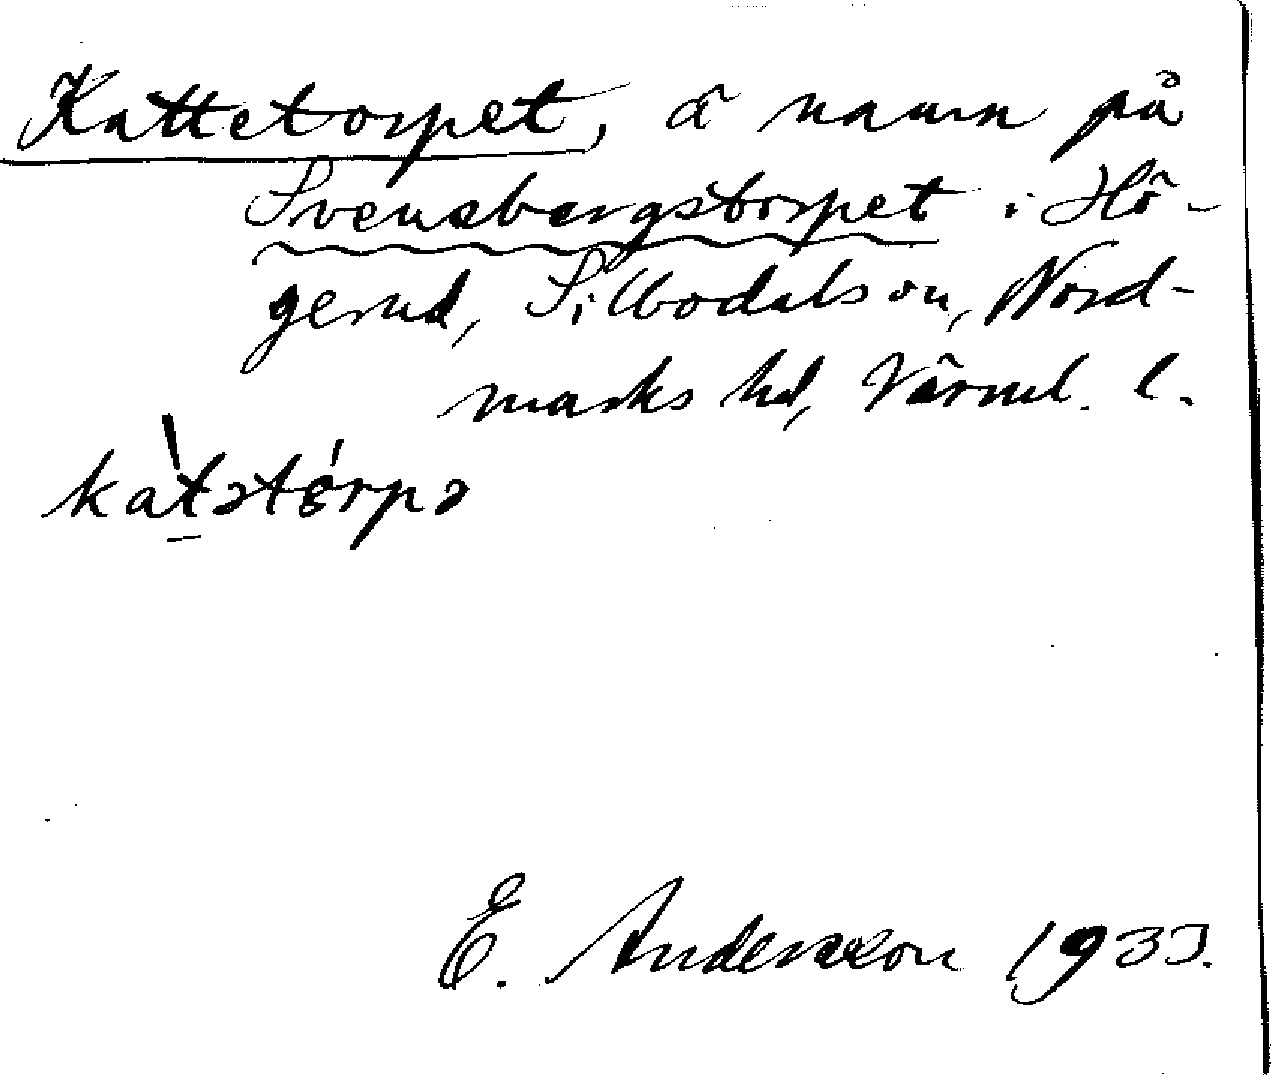 Kattetorpet, ä namn på
Svensbergstorpet i Hö-
gerud, Silbodals sn, Nord-
marks hd, Värml. l.
kàtətórpə
E. Andersson 1933.